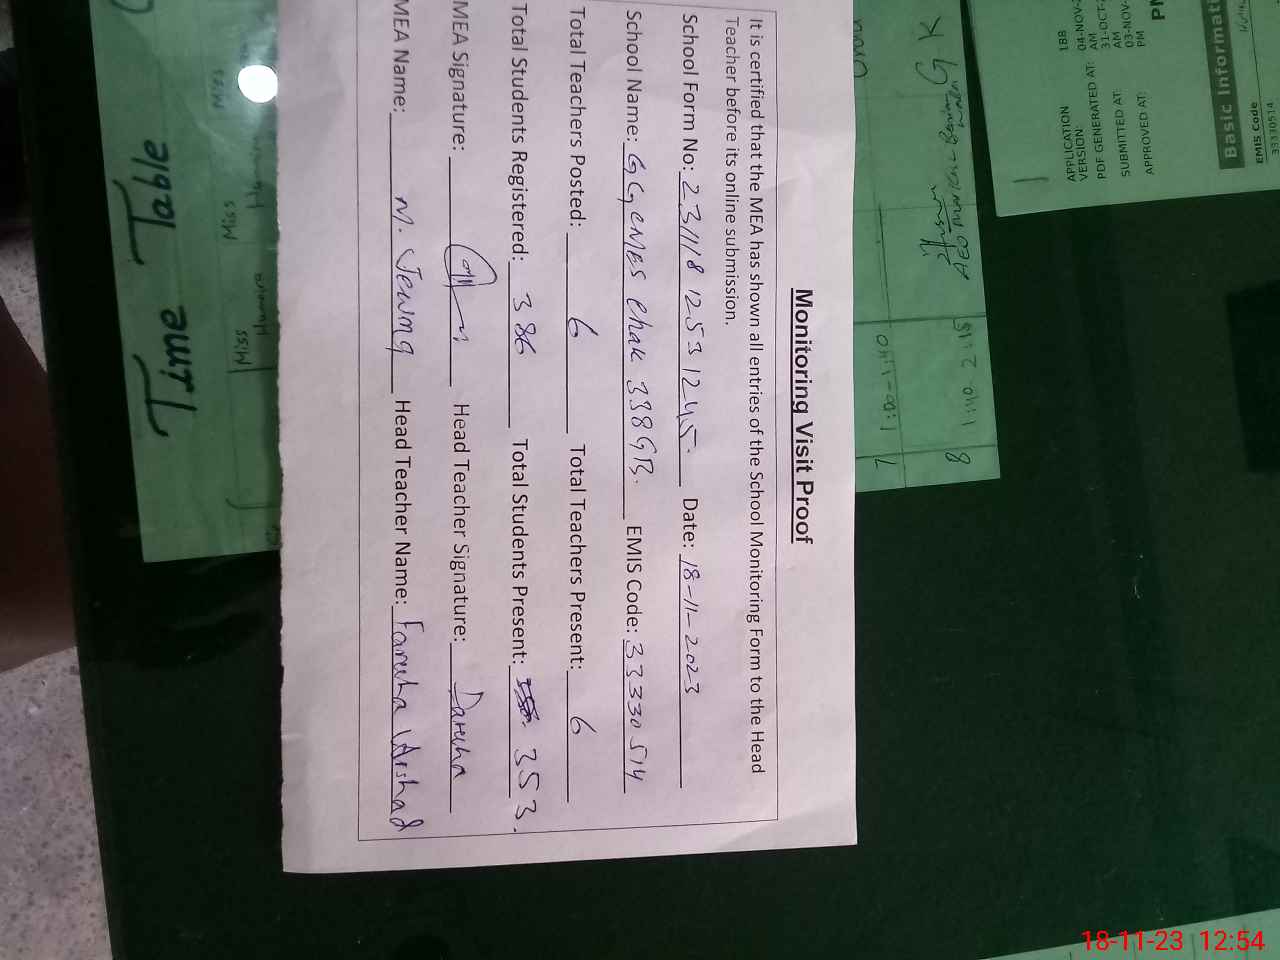 Monitoring Visit Proof
It is certified that the MEA has shown all entries of the School Monitoring Form to the Head
Teacher before its online submission.
School Form No: 231118 1253 1245. Date: 18-11-2023
School Name: GGCMES Chak 338 GB. EMIS Code: 33330514
Total Teachers Posted: 6 Total Teachers Present: 6
Total Students Registered: 386 Total Students Present: 353.
MEA Signature: Head Teacher Signature: Fareeha
MEA Name: M. Head Teacher Name: Fareeha Arshad
Time Table
Miss
Miss
Miss
G K
1:40 2:15
8
1:00-1:40
7
APPLICATION VERSION: 188
PDF GENERATED AT: 04-NOV-
AM
SUBMITTED AT: 31-OCT-
AM
APPROVED AT: 03-NOV-
PM
Basic Informat
EMIS Code
33330514
18-11-23 12:54